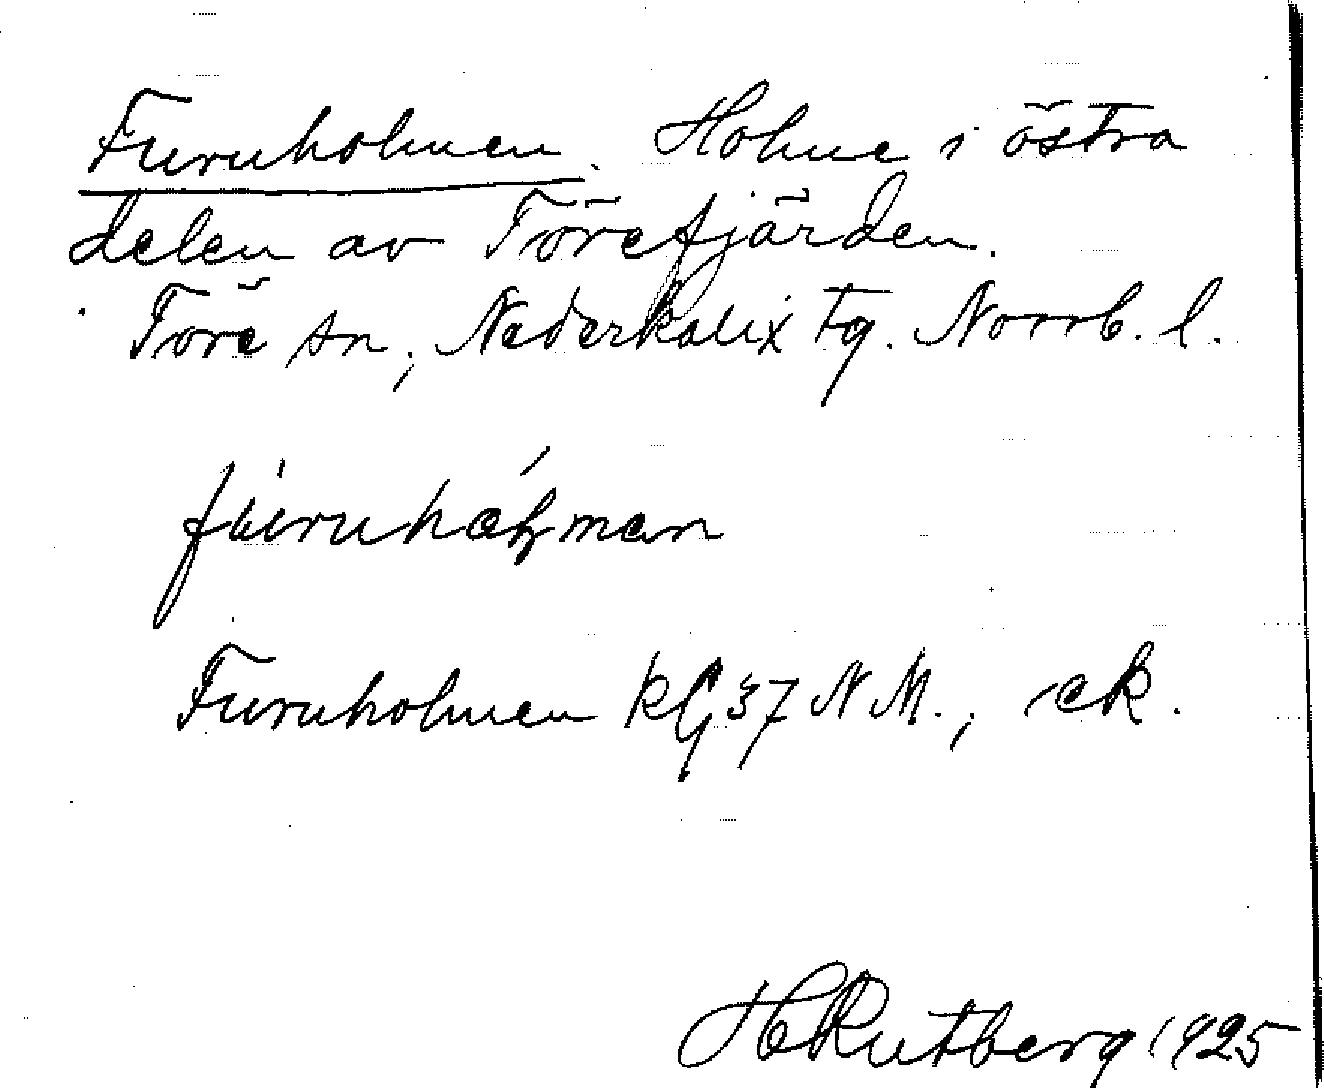 Furuholmen. Holme i östra
delen av Törefjärden.
Töre sn, Nederkalix tg. Norrb. l.
Furuholmen KG 37 NM., ek.
HRutberg 1925